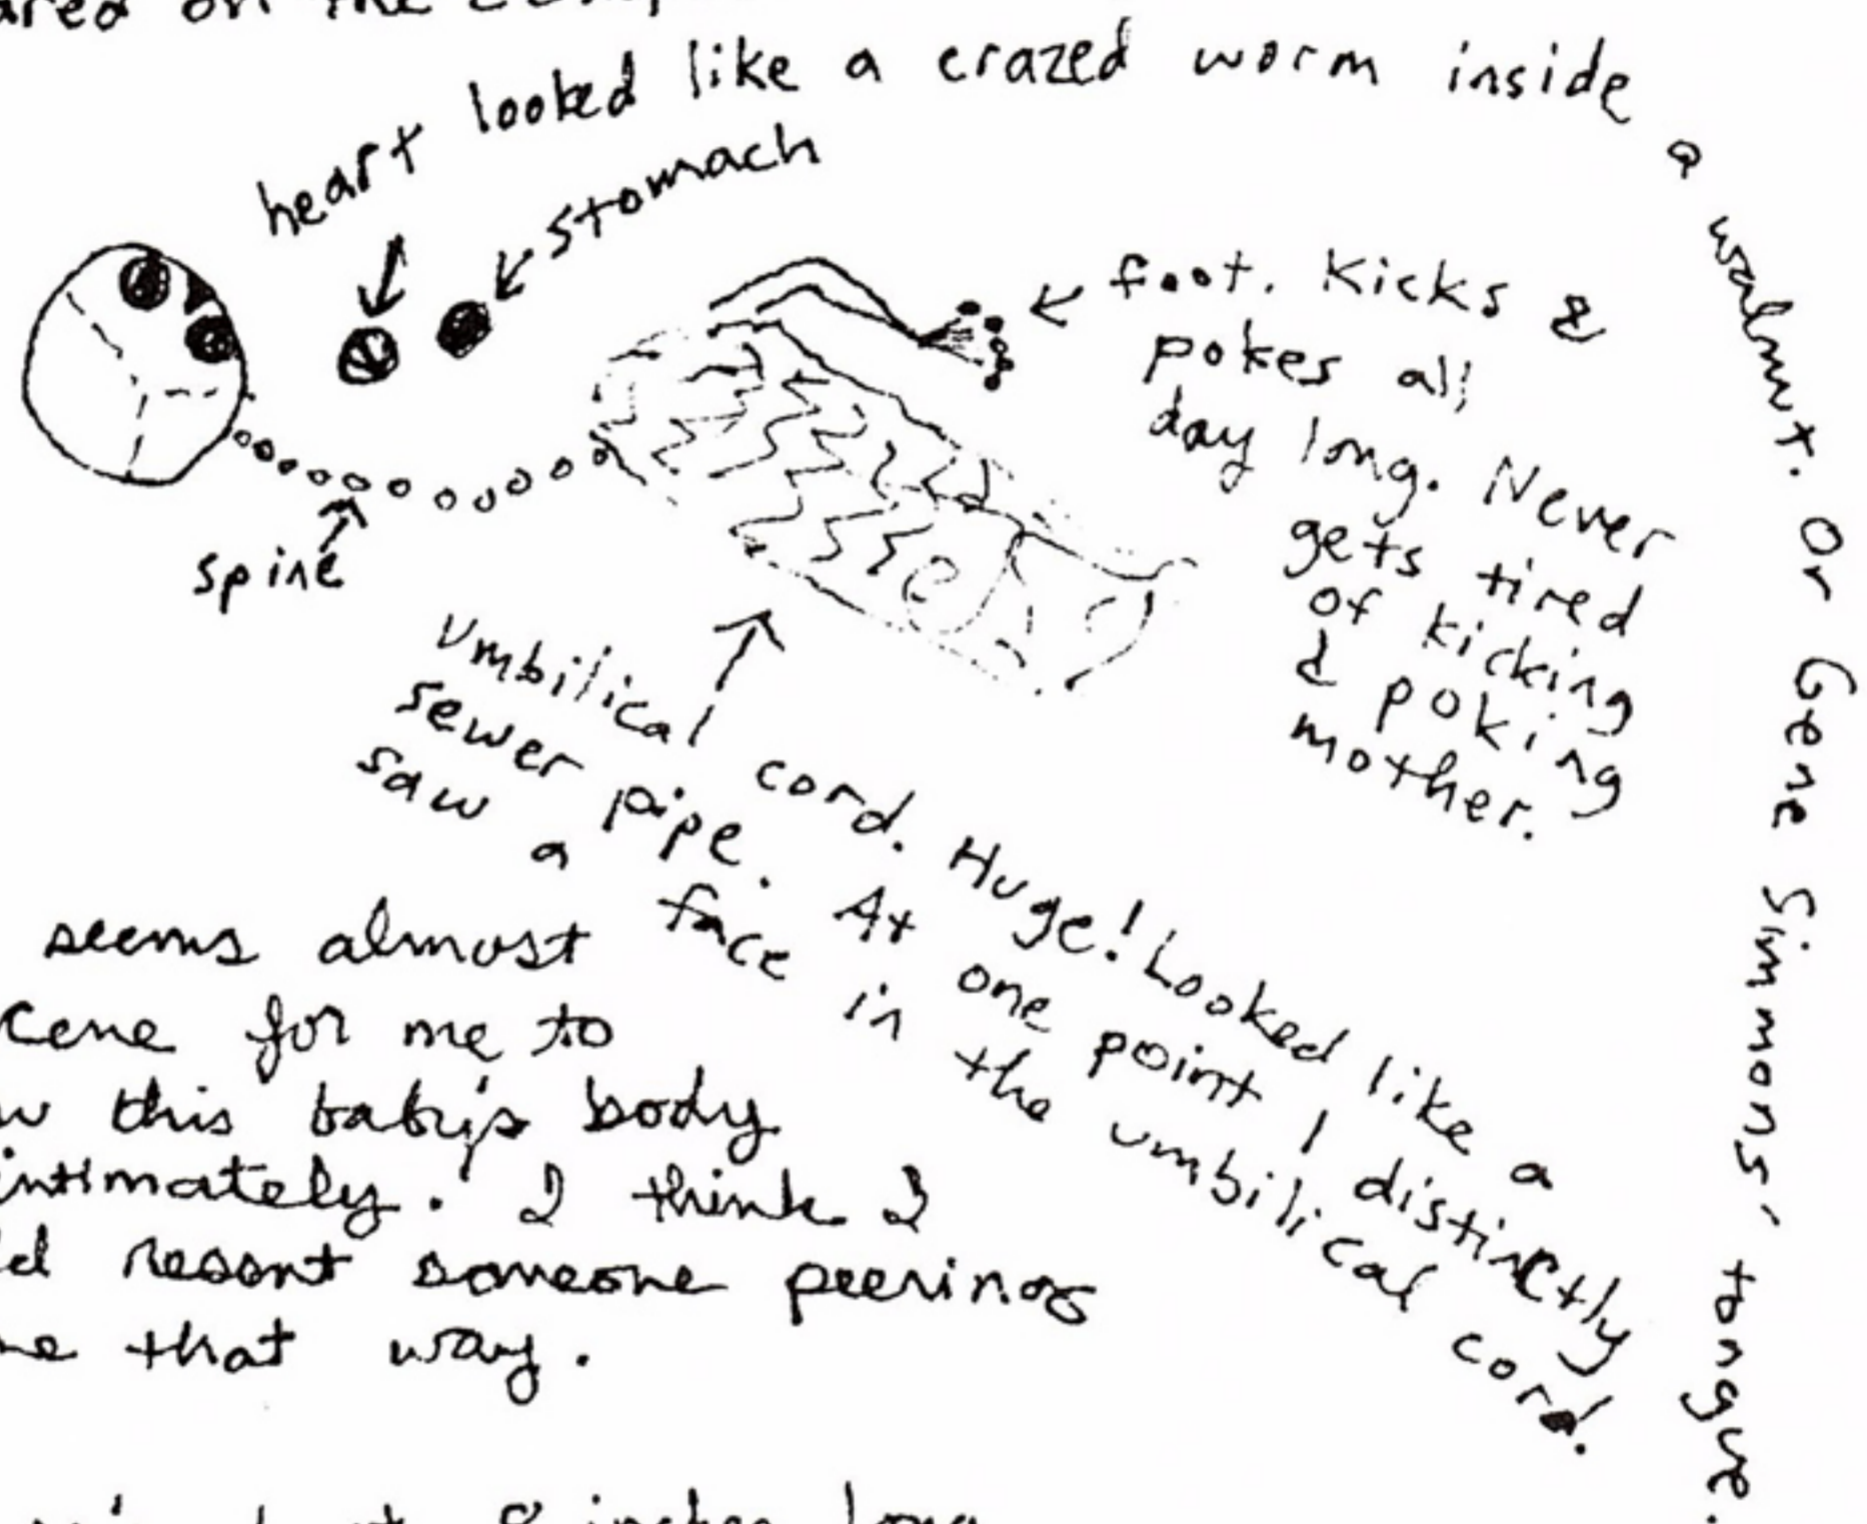 on the
heart looked like a crazed worm inside a walnut. Or Gene Simmons' tongue.
stomach
foot. Kicks &
pokes all
day long. Never
gets tired
of kicking
& poking
mother.
spine
Umbilical cord. Huge! Looked like a
sewer pipe. At one point I distinctly
saw a face in the umbilical cord.
seems almost
for me to
this baby's body
intimately. I think I
resent someone peering
that way.
8 inches long